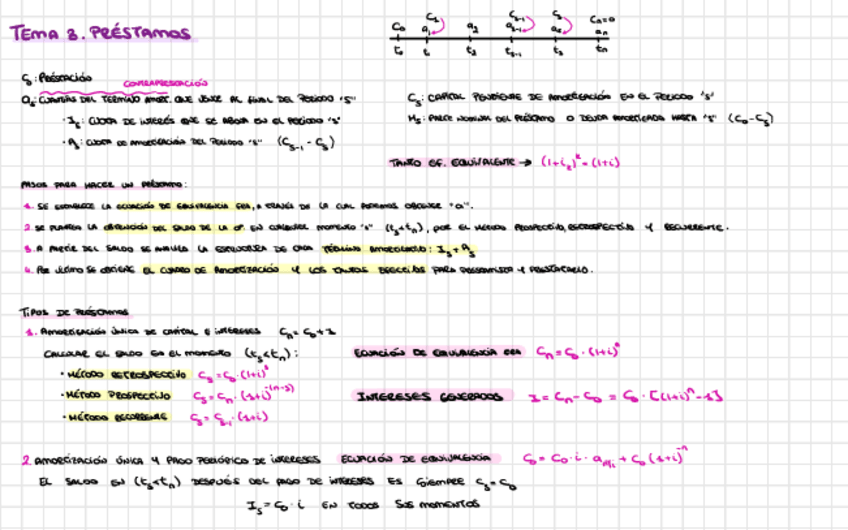 TEMA 8. PRÉSTAMOS
C₀ C₁ a₁ a₂ Cₛ₋₁ aₛ₋₁ Cₛ aₛ Cₙ=0 aₙ
t₀ t₁ t₂ tₛ₋₁ tₛ tₙ
C₀: PRESTACIÓN
CONTRAPRESTACIÓN
aₛ: CUANTÍAS DEL TÉRMINO AMORT. QUE VENCE AL FINAL DEL PERIODO "S"
Cₛ: CAPITAL PENDIENTE DE AMORTIZACIÓN EN EL PERIODO "S"
· Iₛ: CUOTA DE INTERÉS QUE SE ABONA EN EL PERIODO "S"
Mₛ: PARTE NOMINAL DEL PRÉSTAMO O DEUDA AMORTIZADA HASTA "S" (C₀-Cₛ)
· Aₛ: CUOTA DE AMORTIZACIÓN DEL PERIODO "S" (Cₛ₋₁ - Cₛ)
TANTO EF. EQUIVALENTE → (1+iₖ)ᵏ = (1+i)
PASOS PARA HACER UN PRÉSTAMO:
1. SE ESTABLECE LA ECUACIÓN DE EQUIVALENCIA FRA, A TRAVÉS DE LA CUAL PODEMOS OBTENER "a".
2. SE PLANTEA LA OBTENCIÓN DEL SALDO DE LA Oº. EN CUALQUIER MOMENTO "S" (tₛ<tₙ), POR EL MÉTODO PROSPECTIVO, RETROSPECTIVO Y RECURRENTE.
3. A PARTIR DEL SALDO SE ANALIZA LA ESTRUCTURA DE CADA TÉRMINO AMORTIZATIVO: Iₛ + Aₛ
4. POR ÚLTIMO SE OBTIENE EL CUADRO DE AMORTIZACIÓN Y LOS TANTOS EFECTIVOS PARA PRESTAMISTA Y PRESTATARIO.
TIPOS DE PRÉSTAMOS
1. AMORTIZACIÓN ÚNICA DE CAPITAL E INTERESES Cₙ = C₀ + I
CALCULAR EL SALDO EN EL MOMENTO (tₛ<tₙ): ECUACIÓN DE EQUIVALENCIA FRA Cₙ = C₀ · (1+i)ⁿ
· MÉTODO RETROSPECTIVO Cₛ = C₀ · (1+i)ˢ
· MÉTODO PROSPECTIVO Cₛ = Cₙ · (1+i)⁻⁽ⁿ⁻ˢ⁾ INTERESES GENERADOS I = Cₙ - C₀ = C₀ · [(1+i)ⁿ - 1]
· MÉTODO RECURRENTE Cₛ = Cₛ₋₁ · (1+i)
2. AMORTIZACIÓN ÚNICA Y PAGO PERIÓDICO DE INTERESES ECUACIÓN DE EQUIVALENCIA C₀ = C₀ · i · aₙ¬ᵢ + C₀ (1+i)⁻ⁿ
EL SALDO EN (tₛ<tₙ) DESPUÉS DEL PAGO DE INTERESES ES SIEMPRE Cₛ = C₀
Iₛ = C₀ · i EN TODOS SUS MOMENTOS